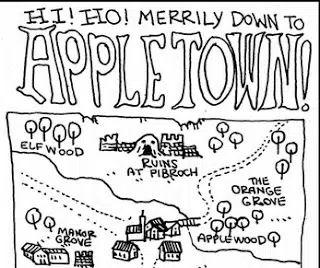 HI! HO! MERRILY DOWN TO
APPLETOWN!
ELFWOOD
RUINS
AT PIBROCH
THE
ORANGE
GROVE
MANOR
GROVE
APPLEWOOD